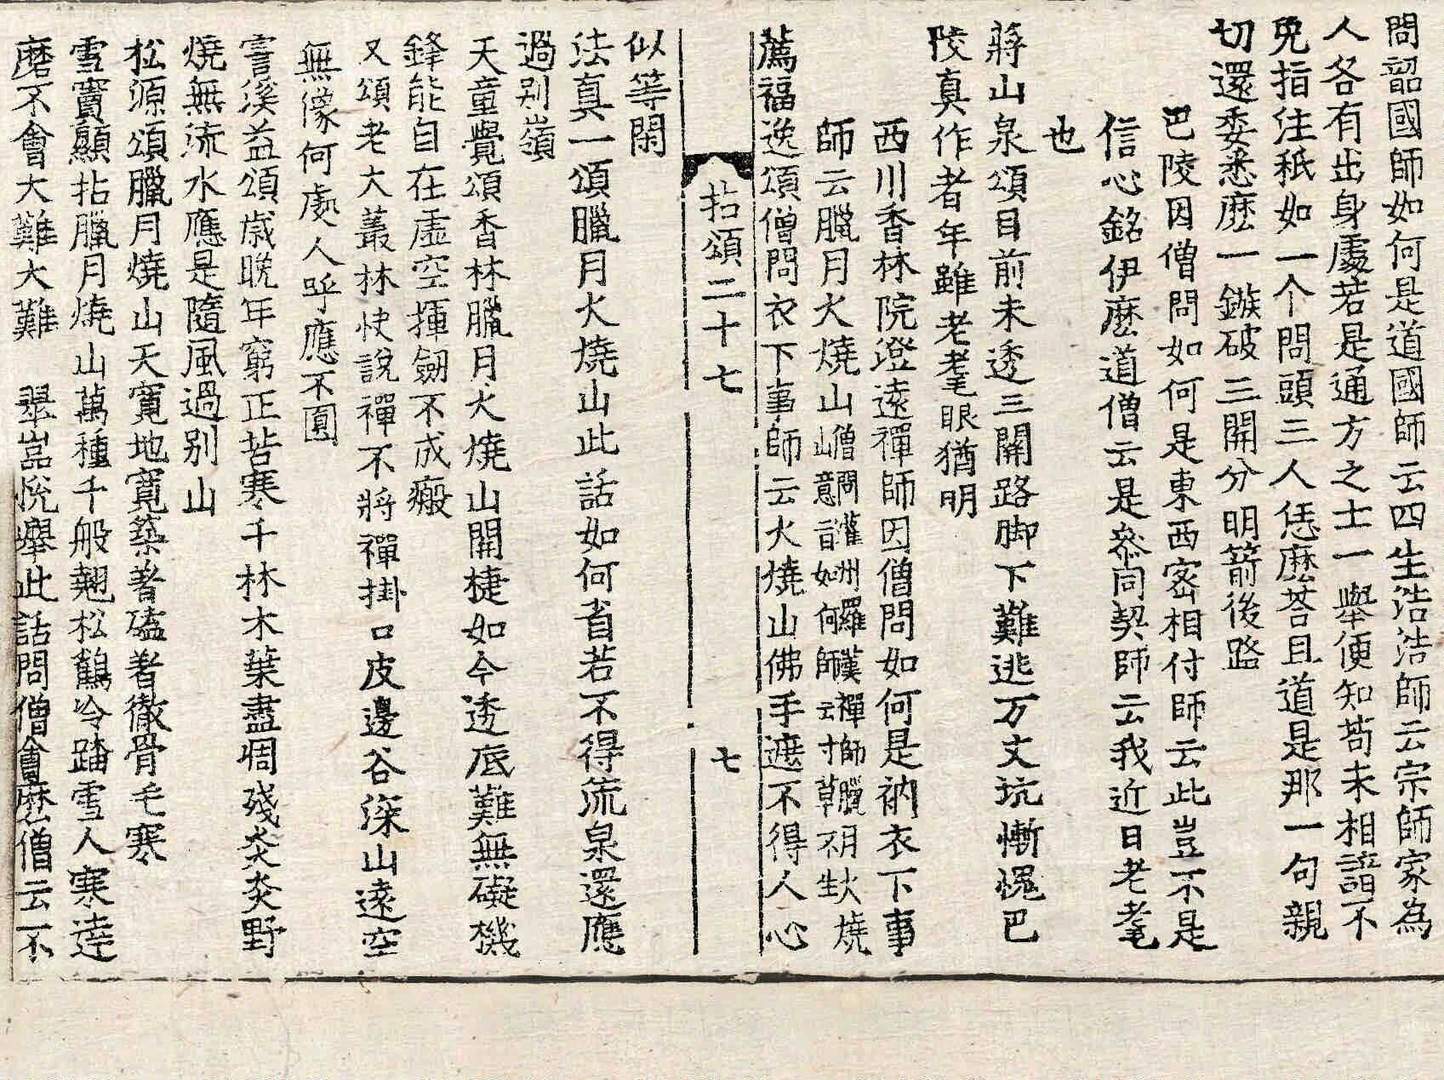 問韶國師如何是道國師云四生浩浩師云宗師家為
人各有出身處若是通方之士一舉便知苟未相諳不
免指注秖如一个問頭三人恁麽荅且道是那一句親
切還委悉麽一鏃破三關分明箭後路
巴陵因僧問如何是東西密相付師云此豈不是
信心銘伊麽道僧云是叅同契師云我近日老耄
也
蔣山泉頌目前未透三關路脚下難逃万丈坑慚愧巴
陵真作者年雖老耄眼猶明
西川香林院澄遠禪師因僧問如何是衲衣下事
師云臘月火燒山僧問灌州羅漢禪師臘月火燒山意旨如何師云寸草不生
薦福逸頌僧問衣下事師云火燒山佛手遮不得人心
拈頌二十七 七
似等閑
法真一頌臘月火燒山此話如何省若不得流泉還應
過别嶺
天童覺頌香林臘月火燒山關棙如今透底難無礙機
鋒能自在虛空揮劒不成瘢
又頌老大叢林快說禪不將禪掛口皮邊谷深山遠空
無像何處人呼應不圓
霅溪益頌歲晩年窮正苦寒千林木葉盡凋殘炎炎野
燒無流水應是隨風過别山
松源頌臘月燒山天寬地寬築著磕著徹骨毛寒
雪竇顯拈臘月燒山萬種千般翹松鶴冷踏雪人寒逹
磨不會大難大難 翠嵓悅舉此話問僧會麽僧云不